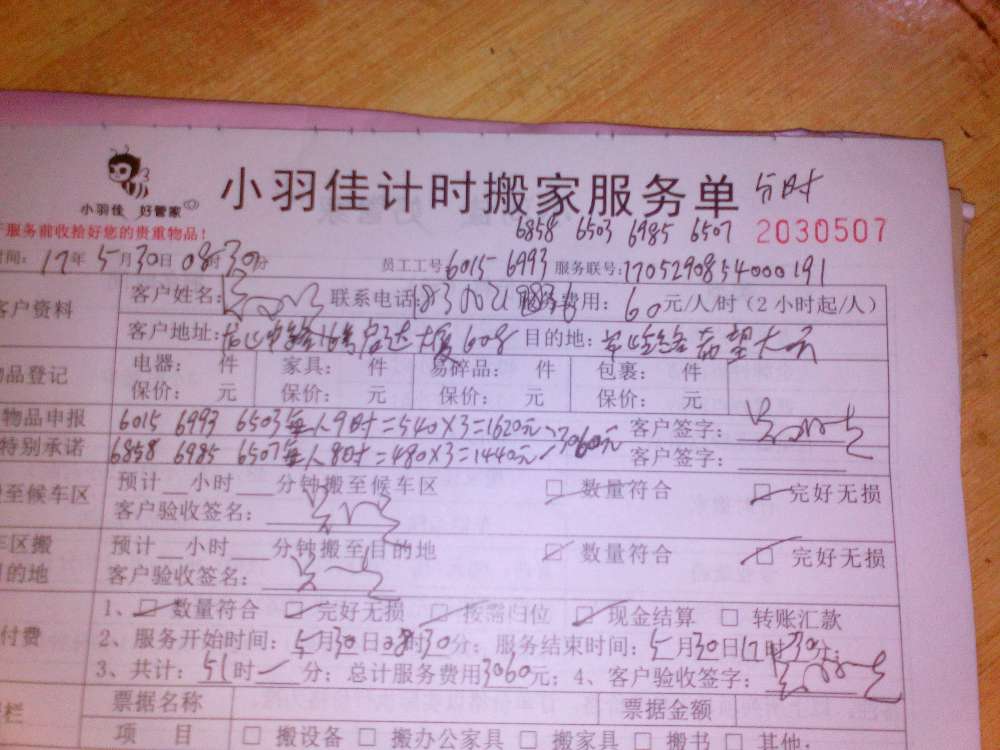 小羽佳 好管家
小羽佳计时搬家服务单 分时
服务前收拾好您的贵重物品!
6858 6503 6985 6507 2030507
时间: 17年5月30日08时30分 员工工号6015 6993 服务联号:1705290854000191
客户资料 客户姓名: 联系电话: 费用: 60元/人/时(2小时起/人)
客户地址: 大厦608 目的地:
物品登记 电器: 件 家具: 件 易碎品: 件 包裹: 件
保价: 元 保价: 元 保价: 元 保价: 元
物品申报 6015 6993 6503每人9时=540×3=1620元 3060元 客户签字:
特别承诺 6858 6985 6507每人8时=480×3=1440元 客户签字:
至候车区 预计__小时___分钟搬至候车区 □ 数量符合 □ 完好无损
客户验收签名:
区搬 预计__小时___分钟搬至目的地 □ 数量符合 □ 完好无损
目的地 客户验收签名:
付费 1、□ 数量符合 □ 完好无损 □ 按需归位 □ 现金结算 □ 转账汇款
2、服务开始时间: 5月30日08时30分; 服务结束时间: 5月30日17时30分;
3、共计: 51时 分; 总计服务费用3060元; 4、客户验收签字:
栏 票据名称 票据金额
项 目 □ 搬设备 □ 搬办公家具 □ 搬家具 □ 搬书 □ 其他: